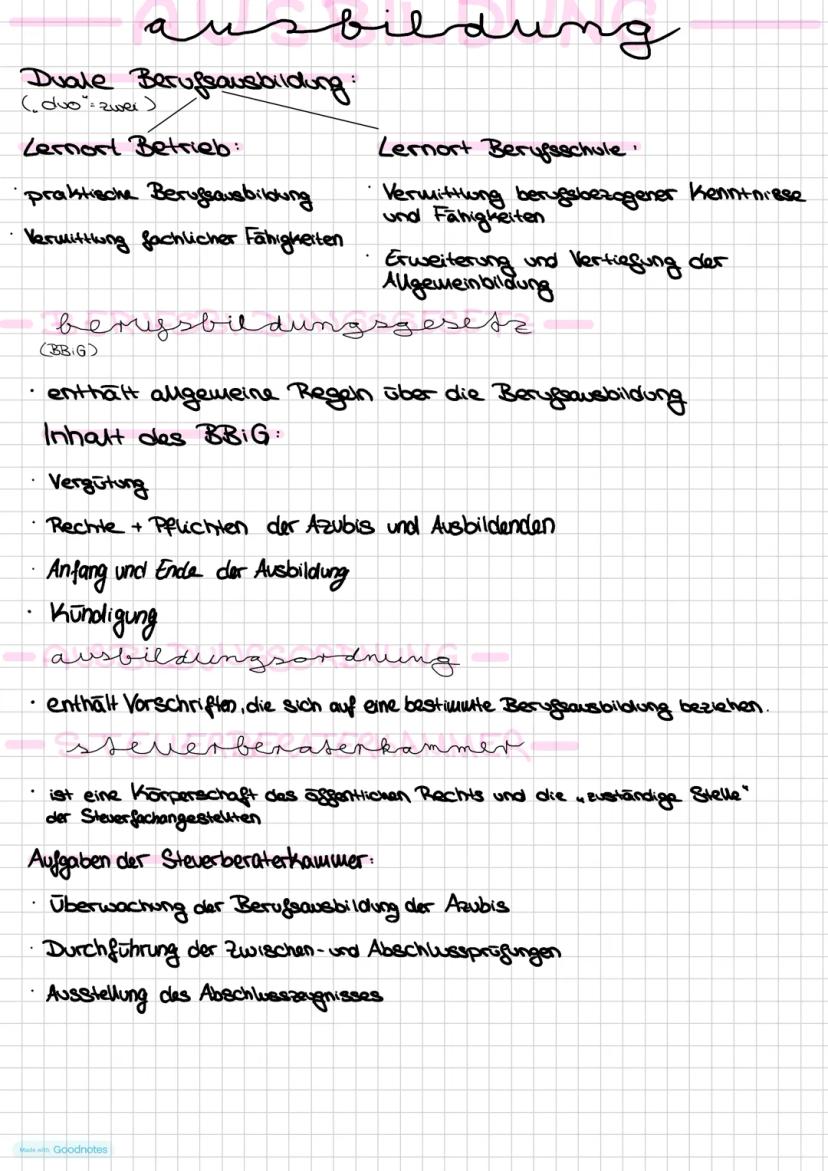 ausbildung
Duale Berufsausbildung:
(„duo" = zwei)
Lernort Betrieb:
· praktische Berufsausbildung
· Vermittlung fachlicher Fähigkeiten
Lernort Berufsschule:
· Vermittlung berufsbezogener Kenntnisse
und Fähigkeiten
· Erweiterung und Vertiefung der
Allgemeinbildung
berufsbildungsgesetz
(BBiG)
· enthält allgemeine Regeln über die Berufsausbildung
Inhalt des BBiG:
· Vergütung
· Rechte + Pflichten der Azubis und Ausbildenden
· Anfang und Ende der Ausbildung
· Kündigung
ausbildungsordnung
· enthält Vorschriften, die sich auf eine bestimmte Berufsausbildung beziehen.
steuerberaterkammer
· ist eine Körperschaft des öffentlichen Rechts und die „zuständige Stelle"
der Steuerfachangestellten
Aufgaben der Steuerberaterkammer:
· Überwachung der Berufsausbildung der Azubis
· Durchführung der Zwischen- und Abschlussprüfungen
· Ausstellung des Abschlusszeugnisses
Made with Goodnotes